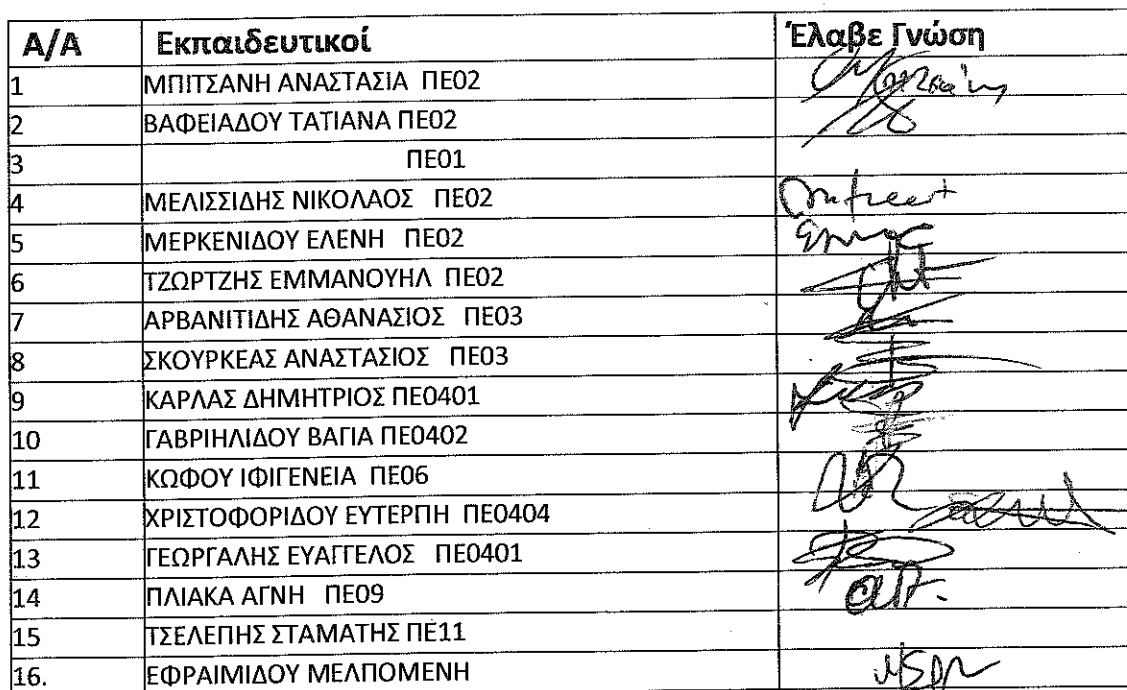 Α/Α Εκπαιδευτικοί Έλαβε Γνώση
1 ΜΠΙΤΣΑΝΗ ΑΝΑΣΤΑΣΙΑ ΠΕ02
2 ΒΑΦΕΙΑΔΟΥ ΤΑΤΙΑΝΑ ΠΕ02
3 ΠΕ01
4 ΜΕΛΙΣΣΙΔΗΣ ΝΙΚΟΛΑΟΣ ΠΕ02
5 ΜΕΡΚΕΝΙΔΟΥ ΕΛΕΝΗ ΠΕ02
6 ΤΖΩΡΤΖΗΣ ΕΜΜΑΝΟΥΗΛ ΠΕ02
7 ΑΡΒΑΝΙΤΙΔΗΣ ΑΘΑΝΑΣΙΟΣ ΠΕ03
8 ΣΚΟΥΡΚΕΑΣ ΑΝΑΣΤΑΣΙΟΣ ΠΕ03
9 ΚΑΡΛΑΣ ΔΗΜΗΤΡΙΟΣ ΠΕ0401
10 ΓΑΒΡΙΗΛΙΔΟΥ ΒΑΓΙΑ ΠΕ0402
11 ΚΩΦΟΥ ΙΦΙΓΕΝΕΙΑ ΠΕ06
12 ΧΡΙΣΤΟΦΟΡΙΔΟΥ ΕΥΤΕΡΠΗ ΠΕ0404
13 ΓΕΩΡΓΑΛΗΣ ΕΥΑΓΓΕΛΟΣ ΠΕ0401
14 ΠΛΙΑΚΑ ΑΓΝΗ ΠΕ09
15 ΤΣΕΛΕΠΗΣ ΣΤΑΜΑΤΗΣ ΠΕ11
16. ΕΦΡΑΙΜΙΔΟΥ ΜΕΛΠΟΜΕΝΗ